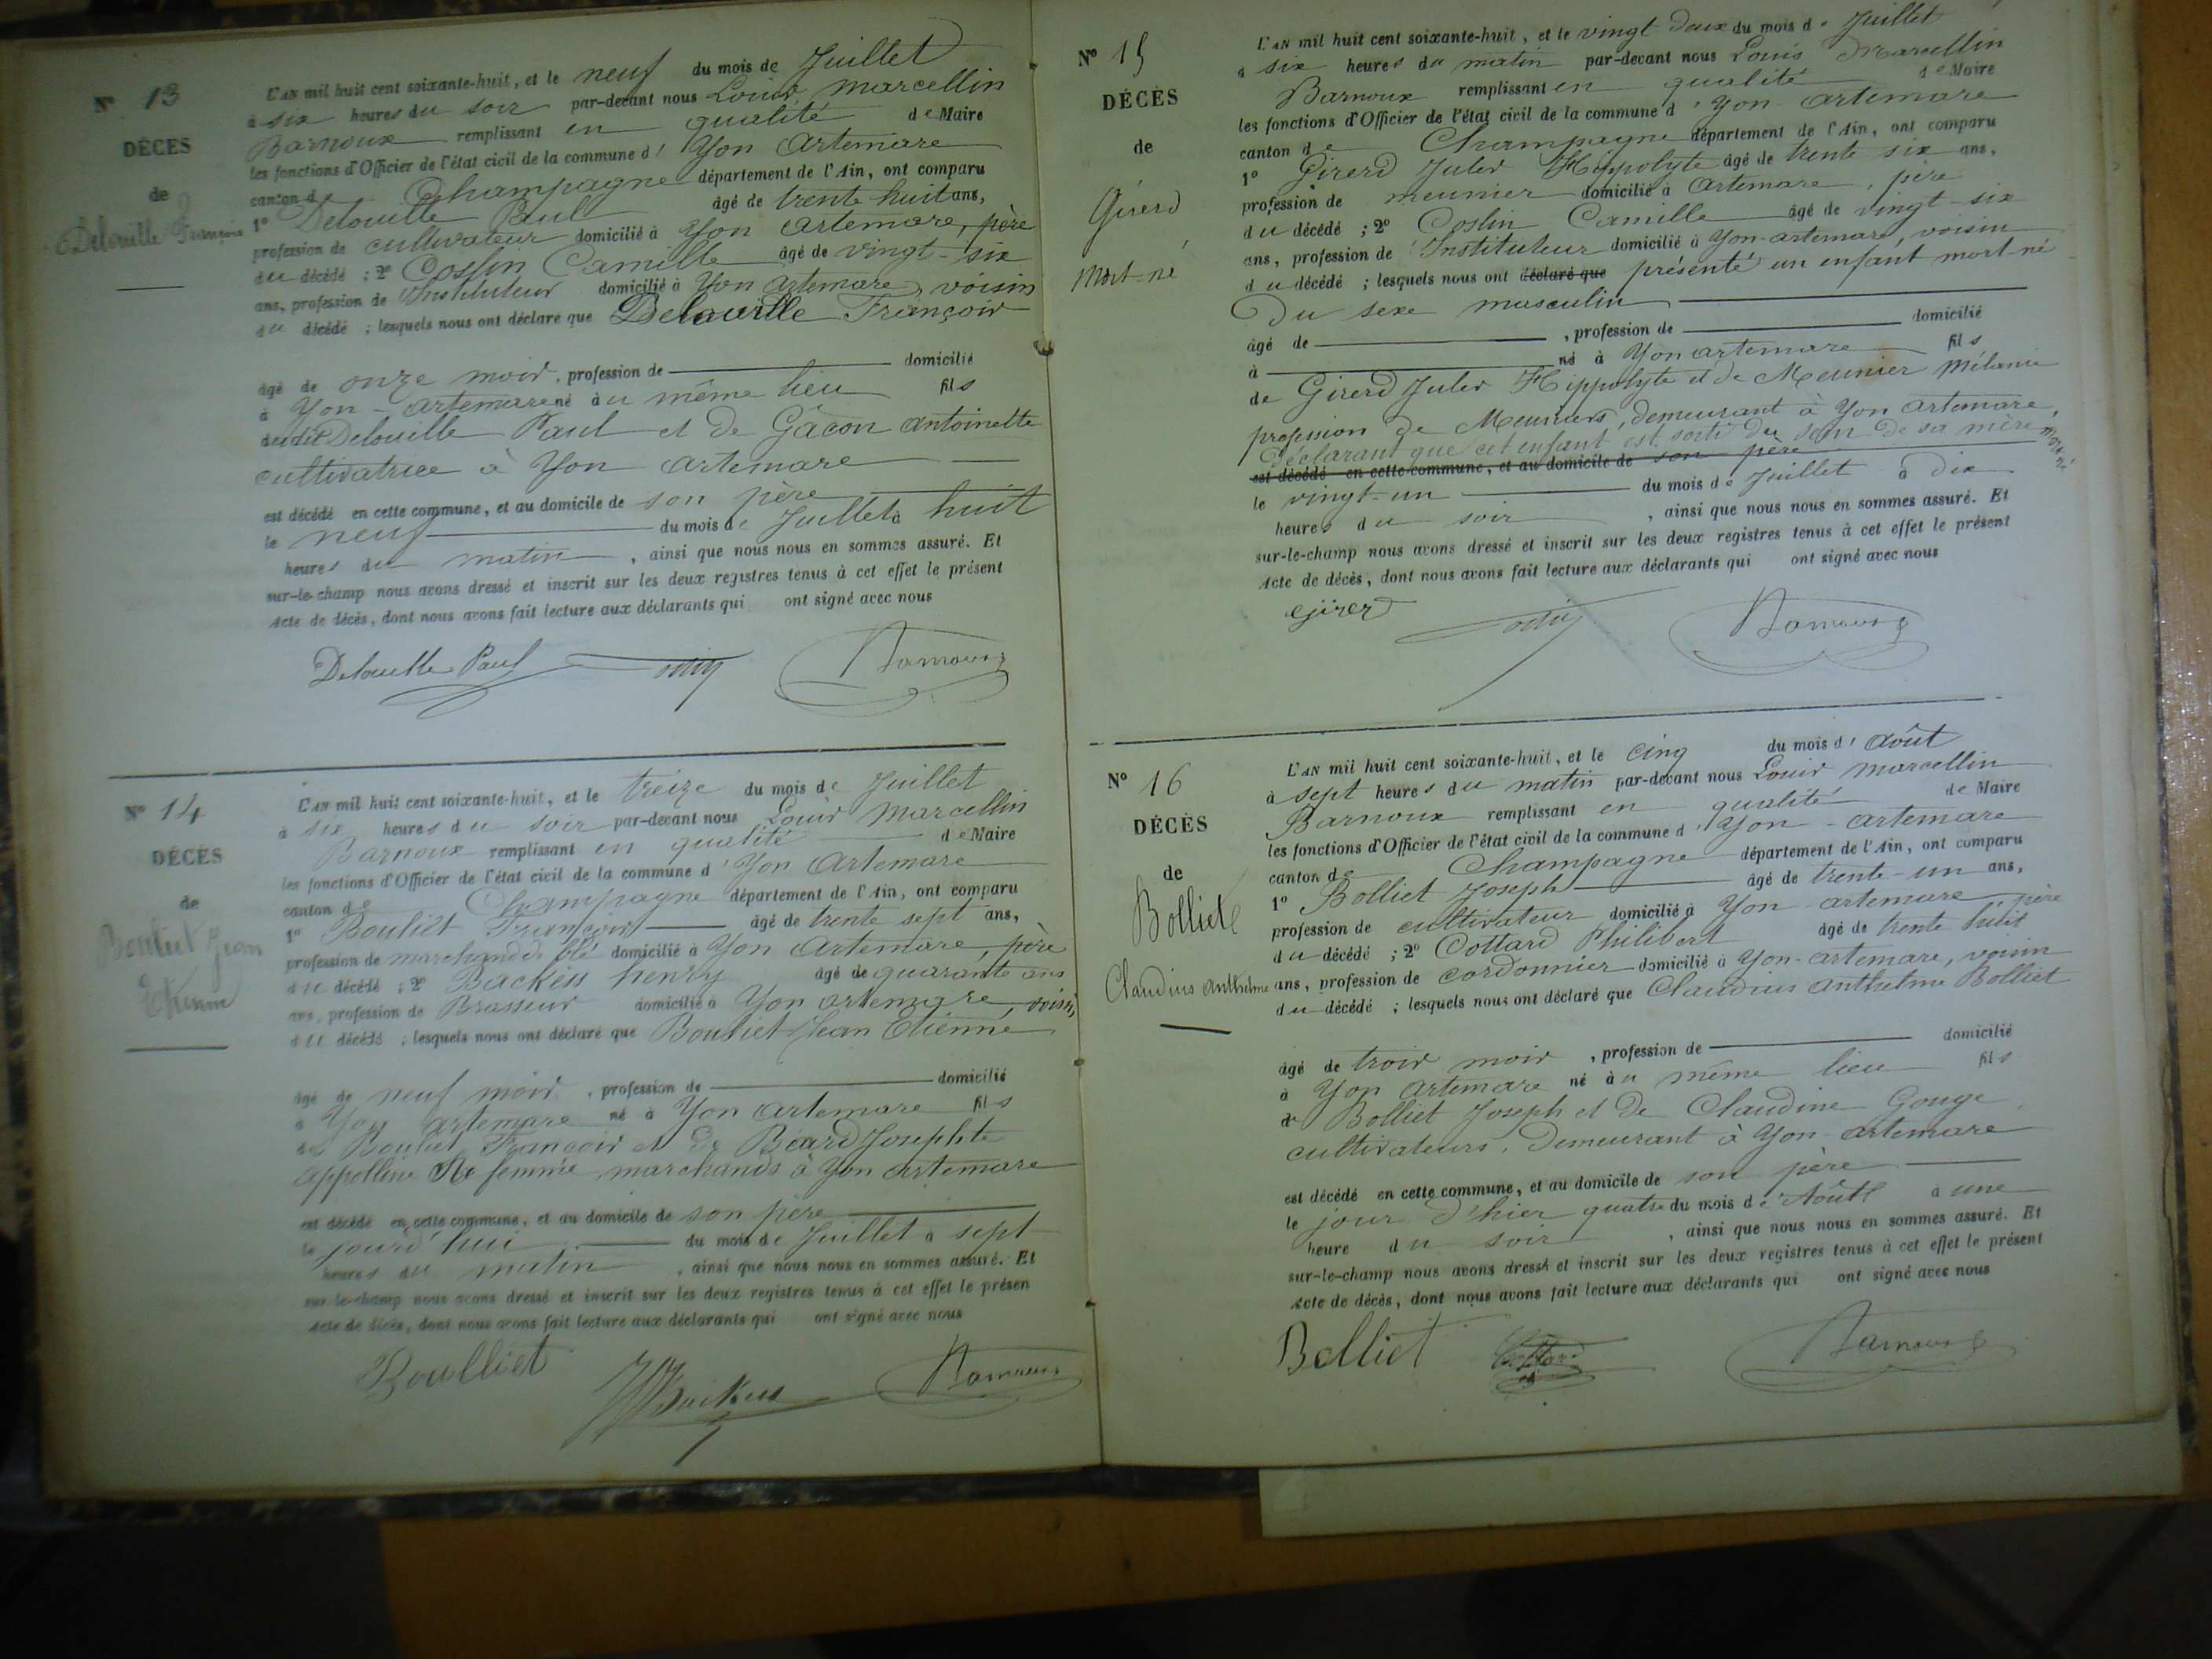 N° 13
DÉCÈS
de
Delouille François
L'AN mil huit cent soixante-huit, et le neuf du mois de Juillet
à six heures du soir par-devant nous Louis Marcellin
Barnoux remplissant en qualité de Maire
les fonctions d'Officier de l'état civil de la commune d' Yon Artemare
canton de Champagne département de l'Ain, ont comparu
1° Delouille Paul âgé de trente huit ans,
profession de cultivateur domicilié à Yon Artemare, père
du décédé ; 2° Coslin Camille âgé de vingt-six
ans, profession de Instituteur domicilié à Yon Artemare, voisin
du décédé ; lesquels nous ont déclaré que Delouille François
âgé de onze mois, profession de domicilié
à Yon-Artemare né au même lieu fils
dudit Delouille Paul et de Gâcon Antoinette
cultivatrice à Yon Artemare
est décédé en cette commune, et au domicile de son père
le neuf du mois de Juillet à huit
heures du matin, ainsi que nous nous en sommes assuré. Et
sur-le-champ nous avons dressé et inscrit sur les deux registres tenus à cet effet le présent
Acte de décès, dont nous avons fait lecture aux déclarants qui ont signé avec nous
Delouille Paul Barnoux
N° 14
DÉCÈS
de
Bouliet Jean
Etienne
L'AN mil huit cent soixante-huit, et le treize du mois de Juillet
à six heures du soir par-devant nous Louis Marcellin
Barnoux remplissant en qualité de Maire
les fonctions d'Officier de l'état civil de la commune d' Yon Artemare
canton de Champagne département de l'Ain, ont comparu
1° Bouliet François âgé de trente sept ans,
profession de marchand de blé domicilié à Yon Artemare, père
du décédé ; 2° Backess henry âgé de quarante ans
ans, profession de Brasseur domicilié à Yon Artemare, voisin
du décédé ; lesquels nous ont déclaré que Bouliet Jean Etienne
âgé de neuf mois, profession de domicilié
à Yon Artemare né à Yon Artemare fils
de Bouliet François et de Béard Josephte
Appolline sa femme, marchands à Yon Artemare
est décédé en cette commune, et au domicile de son père
le jourd'hui du mois de Juillet à sept
heures du matin, ainsi que nous nous en sommes assuré. Et
sur-le-champ nous avons dressé et inscrit sur les deux registres tenus à cet effet le présen
Acte de décès, dont nous avons fait lecture aux déclarants qui ont signé avec nous
Boulliet HBackess Barnoux
N° 15
DÉCÈS
de
Girerd
Mort-né
L'AN mil huit cent soixante-huit, et le vingt deux du mois de Juillet
à six heures du matin par-devant nous Louis Marcellin
Barnoux remplissant en qualité de Maire
les fonctions d'Officier de l'état civil de la commune d' Yon-Artemare
canton de Champagne département de l'Ain, ont comparu
1° Girerd Jules Hippolyte âgé de trente six ans,
profession de meunier domicilié à Artemare, père
du décédé ; 2° Coslin Camille âgé de vingt-six
ans, profession de Instituteur domicilié à Yon-Artemare, voisin
du décédé ; lesquels nous ont déclaré que présenté un enfant mort-né
Du sexe masculin
âgé de , profession de domicilié
à né à Yon Artemare fils
de Girerd Jules Hippolyte et de Meunier Mélanie
profession de Meuniers, demeurant à Yon Artemare,
déclarant que cet enfant est sorti du sein de sa mère mort-né
est décédé en cette commune, et au domicile de son père
le vingt-un du mois de Juillet à dix
heures du soir, ainsi que nous nous en sommes assuré. Et
sur-le-champ nous avons dressé et inscrit sur les deux registres tenus à cet effet le présent
Acte de décès, dont nous avons fait lecture aux déclarants qui ont signé avec nous
Girerd Barnoux
N° 16
DÉCÈS
de
Bolliet
Claudius Anthelme
L'AN mil huit cent soixante-huit, et le cinq du mois d' Août
à sept heures du matin par-devant nous Louis Marcellin
Barnoux remplissant en qualité de Maire
les fonctions d'Officier de l'état civil de la commune d' Yon-Artemare
canton de Champagne département de l'Ain, ont comparu
1° Bolliet Joseph âgé de trente-un ans,
profession de cultivateur domicilié à Yon-Artemare père
du décédé ; 2° Cottard Philibert âgé de trente huit
ans, profession de cordonnier domicilié à Yon-Artemare, voisin
du décédé ; lesquels nous ont déclaré que Claudius Anthelme Bolliet
âgé de trois mois, profession de domicilié
à Yon Artemare né au même lieu fils
de Bolliet Joseph et de Claudine Gouge
cultivateurs, demeurant à Yon-Artemare
est décédé en cette commune, et au domicile de son père
le jour d'hier quatre du mois d' Août à une
heure du soir, ainsi que nous nous en sommes assuré. Et
sur-le-champ nous avons dressé et inscrit sur les deux registres tenus à cet effet le présent
Acte de décès, dont nous avons fait lecture aux déclarants qui ont signé avec nous
Bolliet Cottard Barnoux